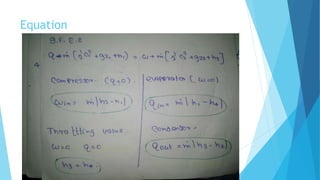 Equation
S.F.E.E
Q + m [½ C² + gz₁ + h₁] = ω + m [½ C² + gz₂ + h₂]
Compressor (Q=0)
Win = m | h2 - h1 |
evaporator (ω=0)
Qin = m | h1 - h4 |
Throttling valve
ω=0 Q=0
h3 = h4
Condensor -
Qout = m | h3 - h2 |